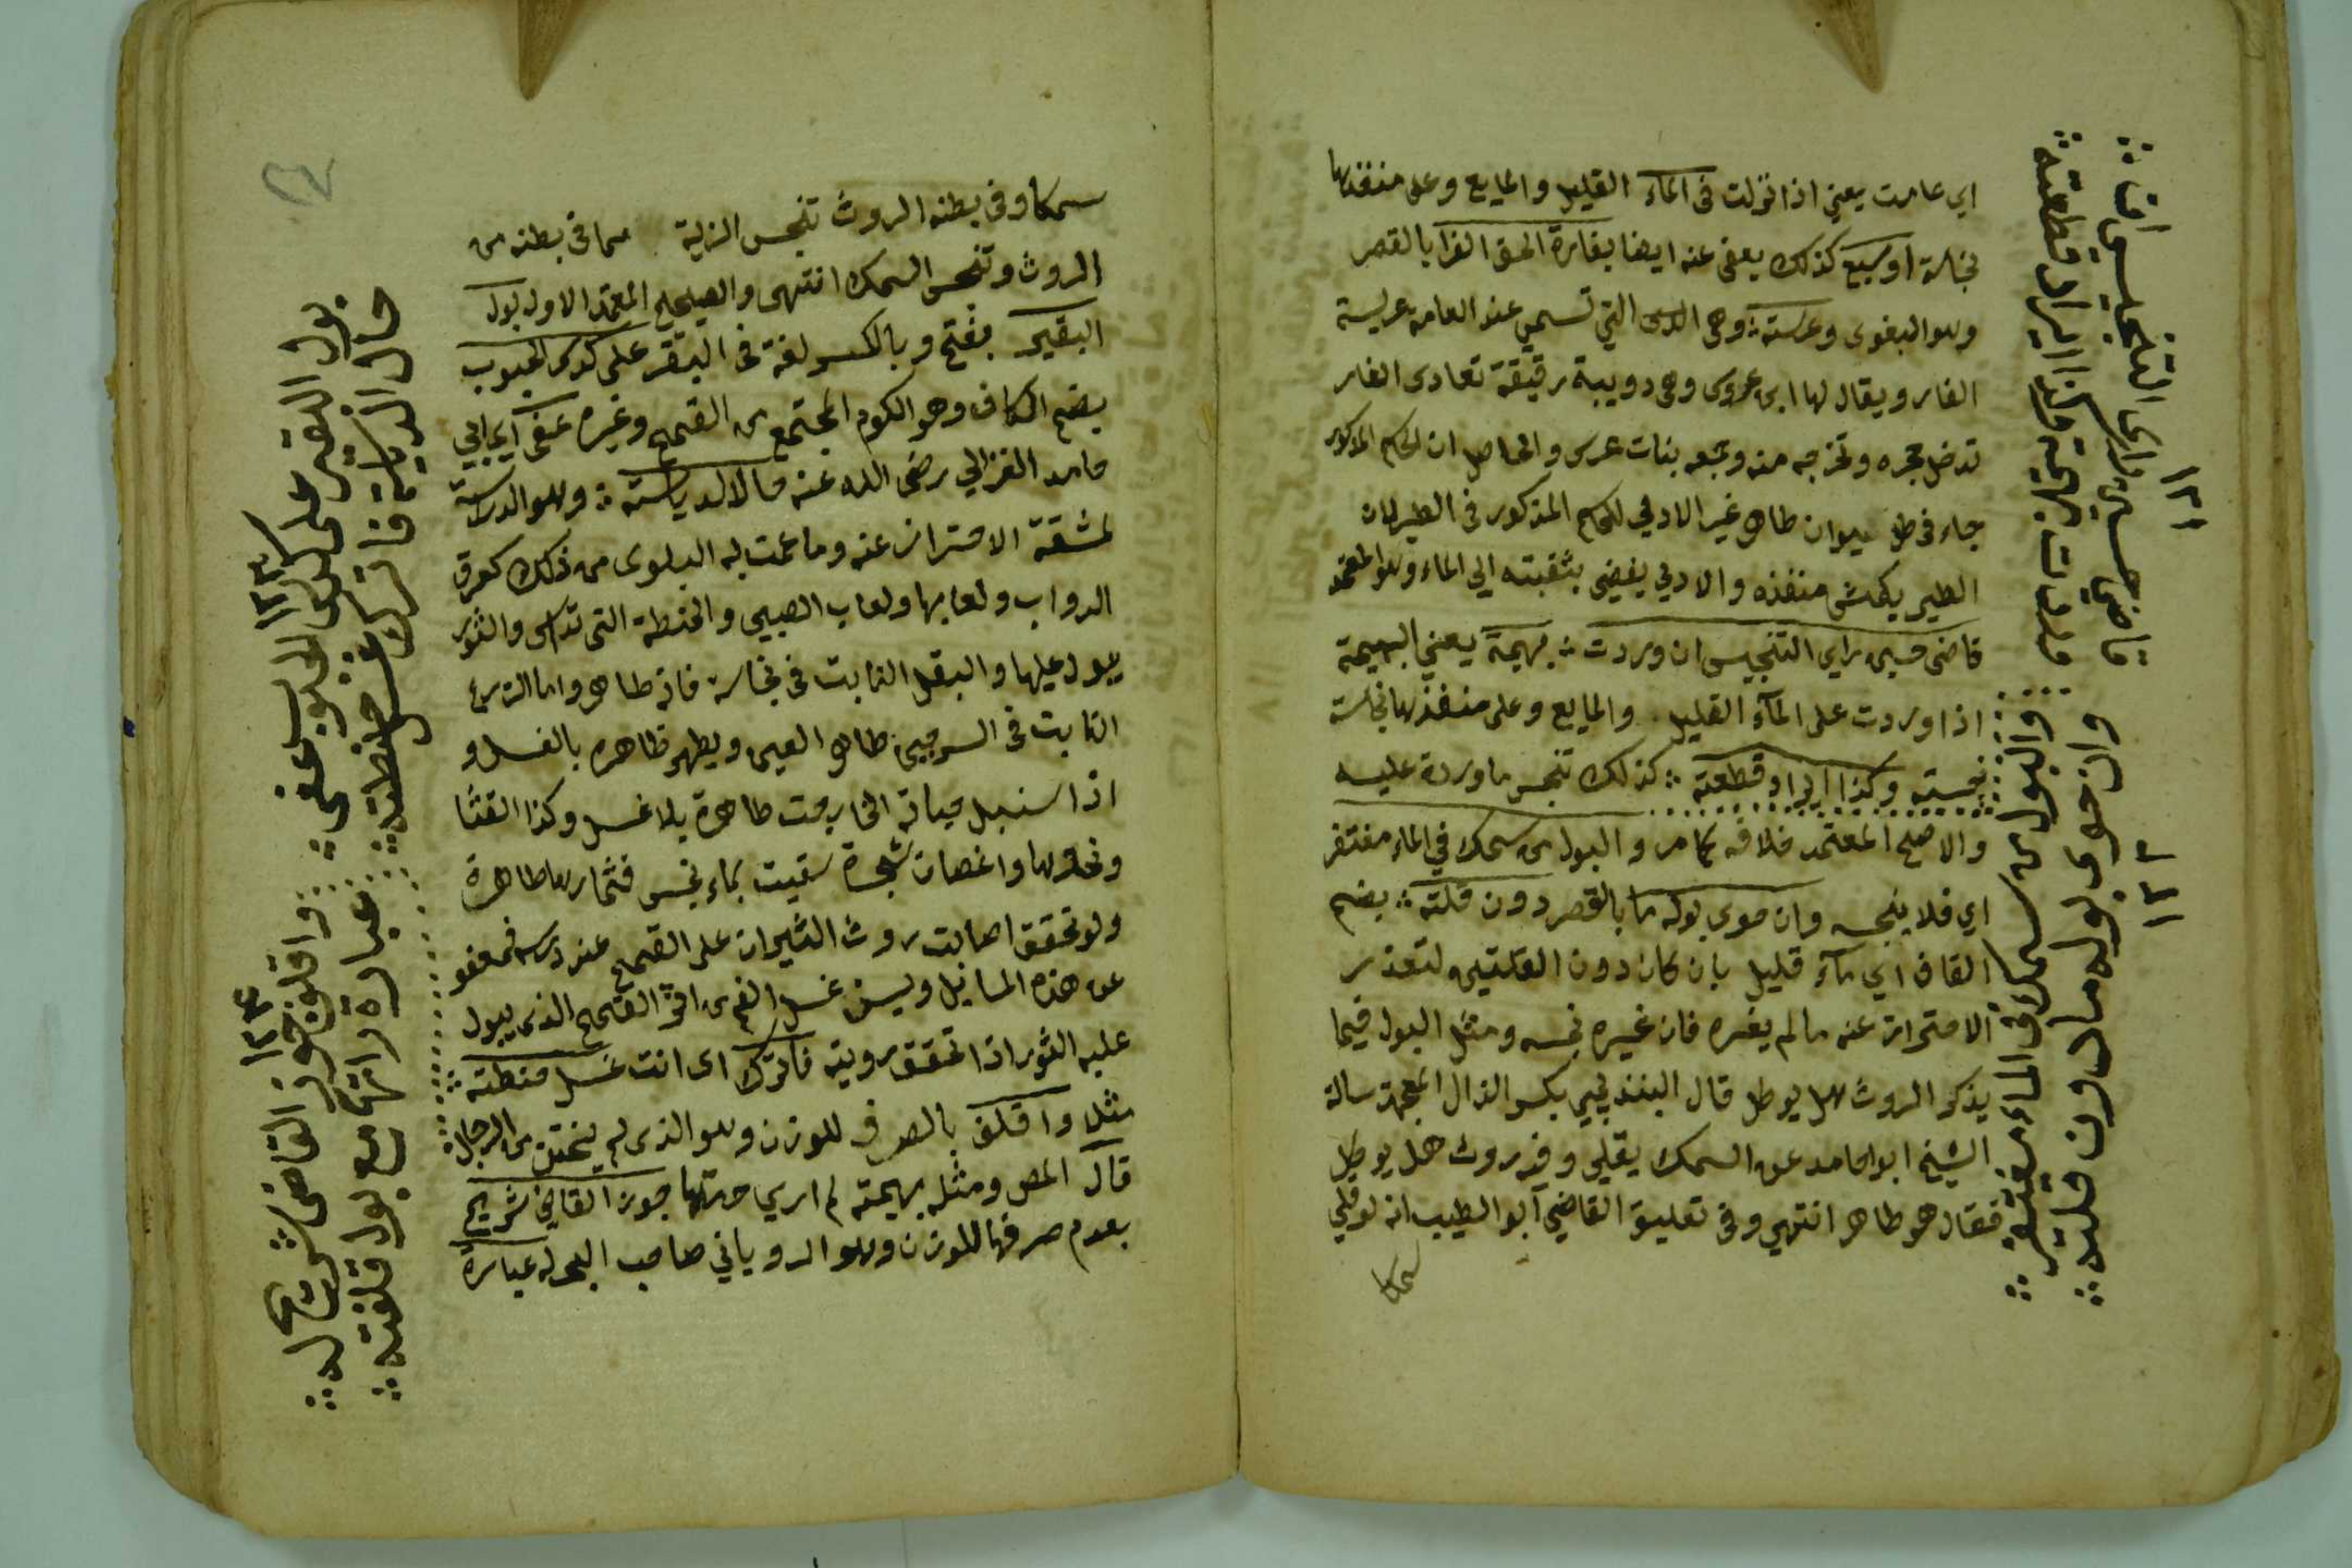 اي عامت يعني اذا نزلت فى المآء القليل والمايع وعلى منفذها
نجاسة او سبع كذلك يعفى عنه ايضا بفارة الحق الفرا بالقصر
وهو البغوى وعرسته وهى التي تسمى عند العامة عريسة
الفار ويقال لها ابن عروس وهى دويبة رقيقة تعادى الفار
تدخل حجره وتخرجه منه وجمعه بنات عرس والحاصل ان الحكم المذكور
جاء فى كل حيوان طاهر غير الادمي للحكم المذكور فى الطير لان
الطير يكمش منفذه والادمي يفضى بثقبته الي الماء
قاضى حسين راي التنجيس ان وردت بهيمة يعني البهيمة
اذا وردت على المآء القليل والمايع وعلى منفذها نجاسة
كذلك تنجس ما وردة عليه
والاصح المعتمد خلافه كما مر والبول من سمك في الماء مغتفر
اي فلا ينجسه وان حوى بوله ما بالقصر دون قلته بضم
القاف اي مآء قليل بان كان دون القلتين لتعذر
الاحتراز عنه ما لم يغيره فان غيره نجسه ومثل البول فيما
يذكر الروث هل يوكل قال البندنيجي بكسر الذال المعجمة سالة
الشيخ ابو احامد عن السمك يقلي وفيه روث هل يوكل
فقال هو طاهر انتهي وفى تعليق القاضي ابو الطيب انه لو قلي
سمكا
١٣١
والبول من سمك فى الماء مغتفر
وان حوى بوله ما دون قلته
١٣٢
سمكا وفى بطنه الروث تنجس الزيت مما فى بطنه من
الروث وتنجس السمك انتهى والصحيح المعتمد الاول بول
البقير بفتح وبالكسر لغة فى البقر على كدس الحبوب
بضم الكاف وهو الكوم المجتمع من القمح وغيره عفى اي ابي
حامد الغزالي رضى الله عنه حالا لدياسته وهو الدراسة
لمشقة الاحتراز عنه وما عمت به البلوى من ذلك كعرق
الدواب ولعابها ولعاب الصبي والحنطة التى تداس والثور
يبول عليها والبقل النابت فى نجاسة فانه طاهر واما الزرع
النابت فى السرجين طاهر العين ويطهر ظاهره بالغسل و
اذا سنبل حباته الخارجت طاهرة بلا غسل وكذا القثا
ونحوها واغصان شجرة سقيت بماء نجس فثمارها طاهرة
ولو تحقق اصابت روث الثيران على القمح عند درسه فمعفو
عن هذه المسايل ويسن غسل الفم من القمح الذى يبول
عليه الثور اذا تحقق رويته فاترك اى انت غسل حنطته
مثلا واقلف بالصرف للوزن وهو الذى لم يختتن من الرجال
قال المص ومثله بهيمة لم اري حرمتها جوز القاضي شريح
بعدم صرفها للوزن وهو الروياني صاحب البحر له عبارة
بول البقير على كدس الحبوب عفى
حال الدياسة فاترك غسل حنطته
١٣٣
واقلف جوز القاضى شريح له
عبارة اتهم مع بول قلفته
١٣٤